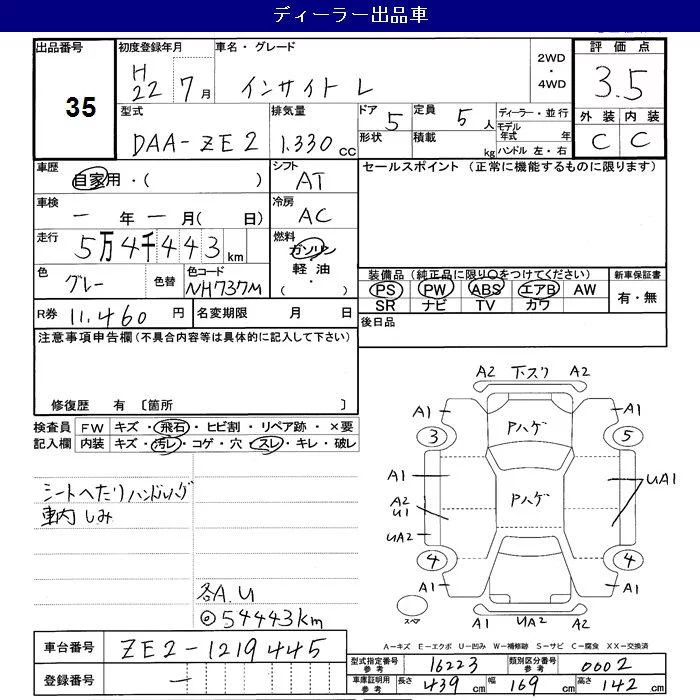 ディーラー出品車
出品番号
35
初度登録年月
H22 7月
車名・グレード
インサイト L
2WD
・
4WD
評価点
3.5
型式
DAA-ZE2
排気量
1.330 cc
ドア 5
形状
定員 5人
積載 kg
ディーラー・並行
モデル年式 年
ハンドル 左・右
外装 内装
C C
車歴
自家用・( )
シフト
AT
セールスポイント (正常に機能するものに限ります)
車検
ー 年 ー 月( 日)
冷房
AC
走行
5万4千443 km
燃料
ガソリン
軽油
・
( )
色
グレー
色替
色コード
NH737M
装備品(純正品に限り○をつけてください)
新車保証書
PS PW ABS エアB AW
SR ナビ TV カワ
有・無
R券 11.460 円
名変期限 月 日
後日品
注意事項申告欄(不具合内容等は具体的に記入して下さい)
修復歴 有 〔箇所 〕
検査員
記入欄
FW キズ・飛石・ヒビ割・リペア跡・×要
内装 キズ・汚レ・コゲ・穴・スレ・キレ・破レ
シートへたり ハンドルハゲ
車内しみ
各A.U
◎54443km
A2 下スリ A2
A1 A1
3 Pハゲ 5
A1 Pハゲ UA1
A2
U1
UA2
4 4
A1 A1
スペア A1 UA2 A2
A-キズ E-エクボ U-凹み W-補修跡 S-サビ C-腐食 XX-交換済
車台番号 ZE2-1219445
登録番号 ー
型式指定番号 参考 16223 類別区分番号 参考 0002
車庫証明用 参考 長さ 439 cm 幅 169 cm 高さ 142 cm